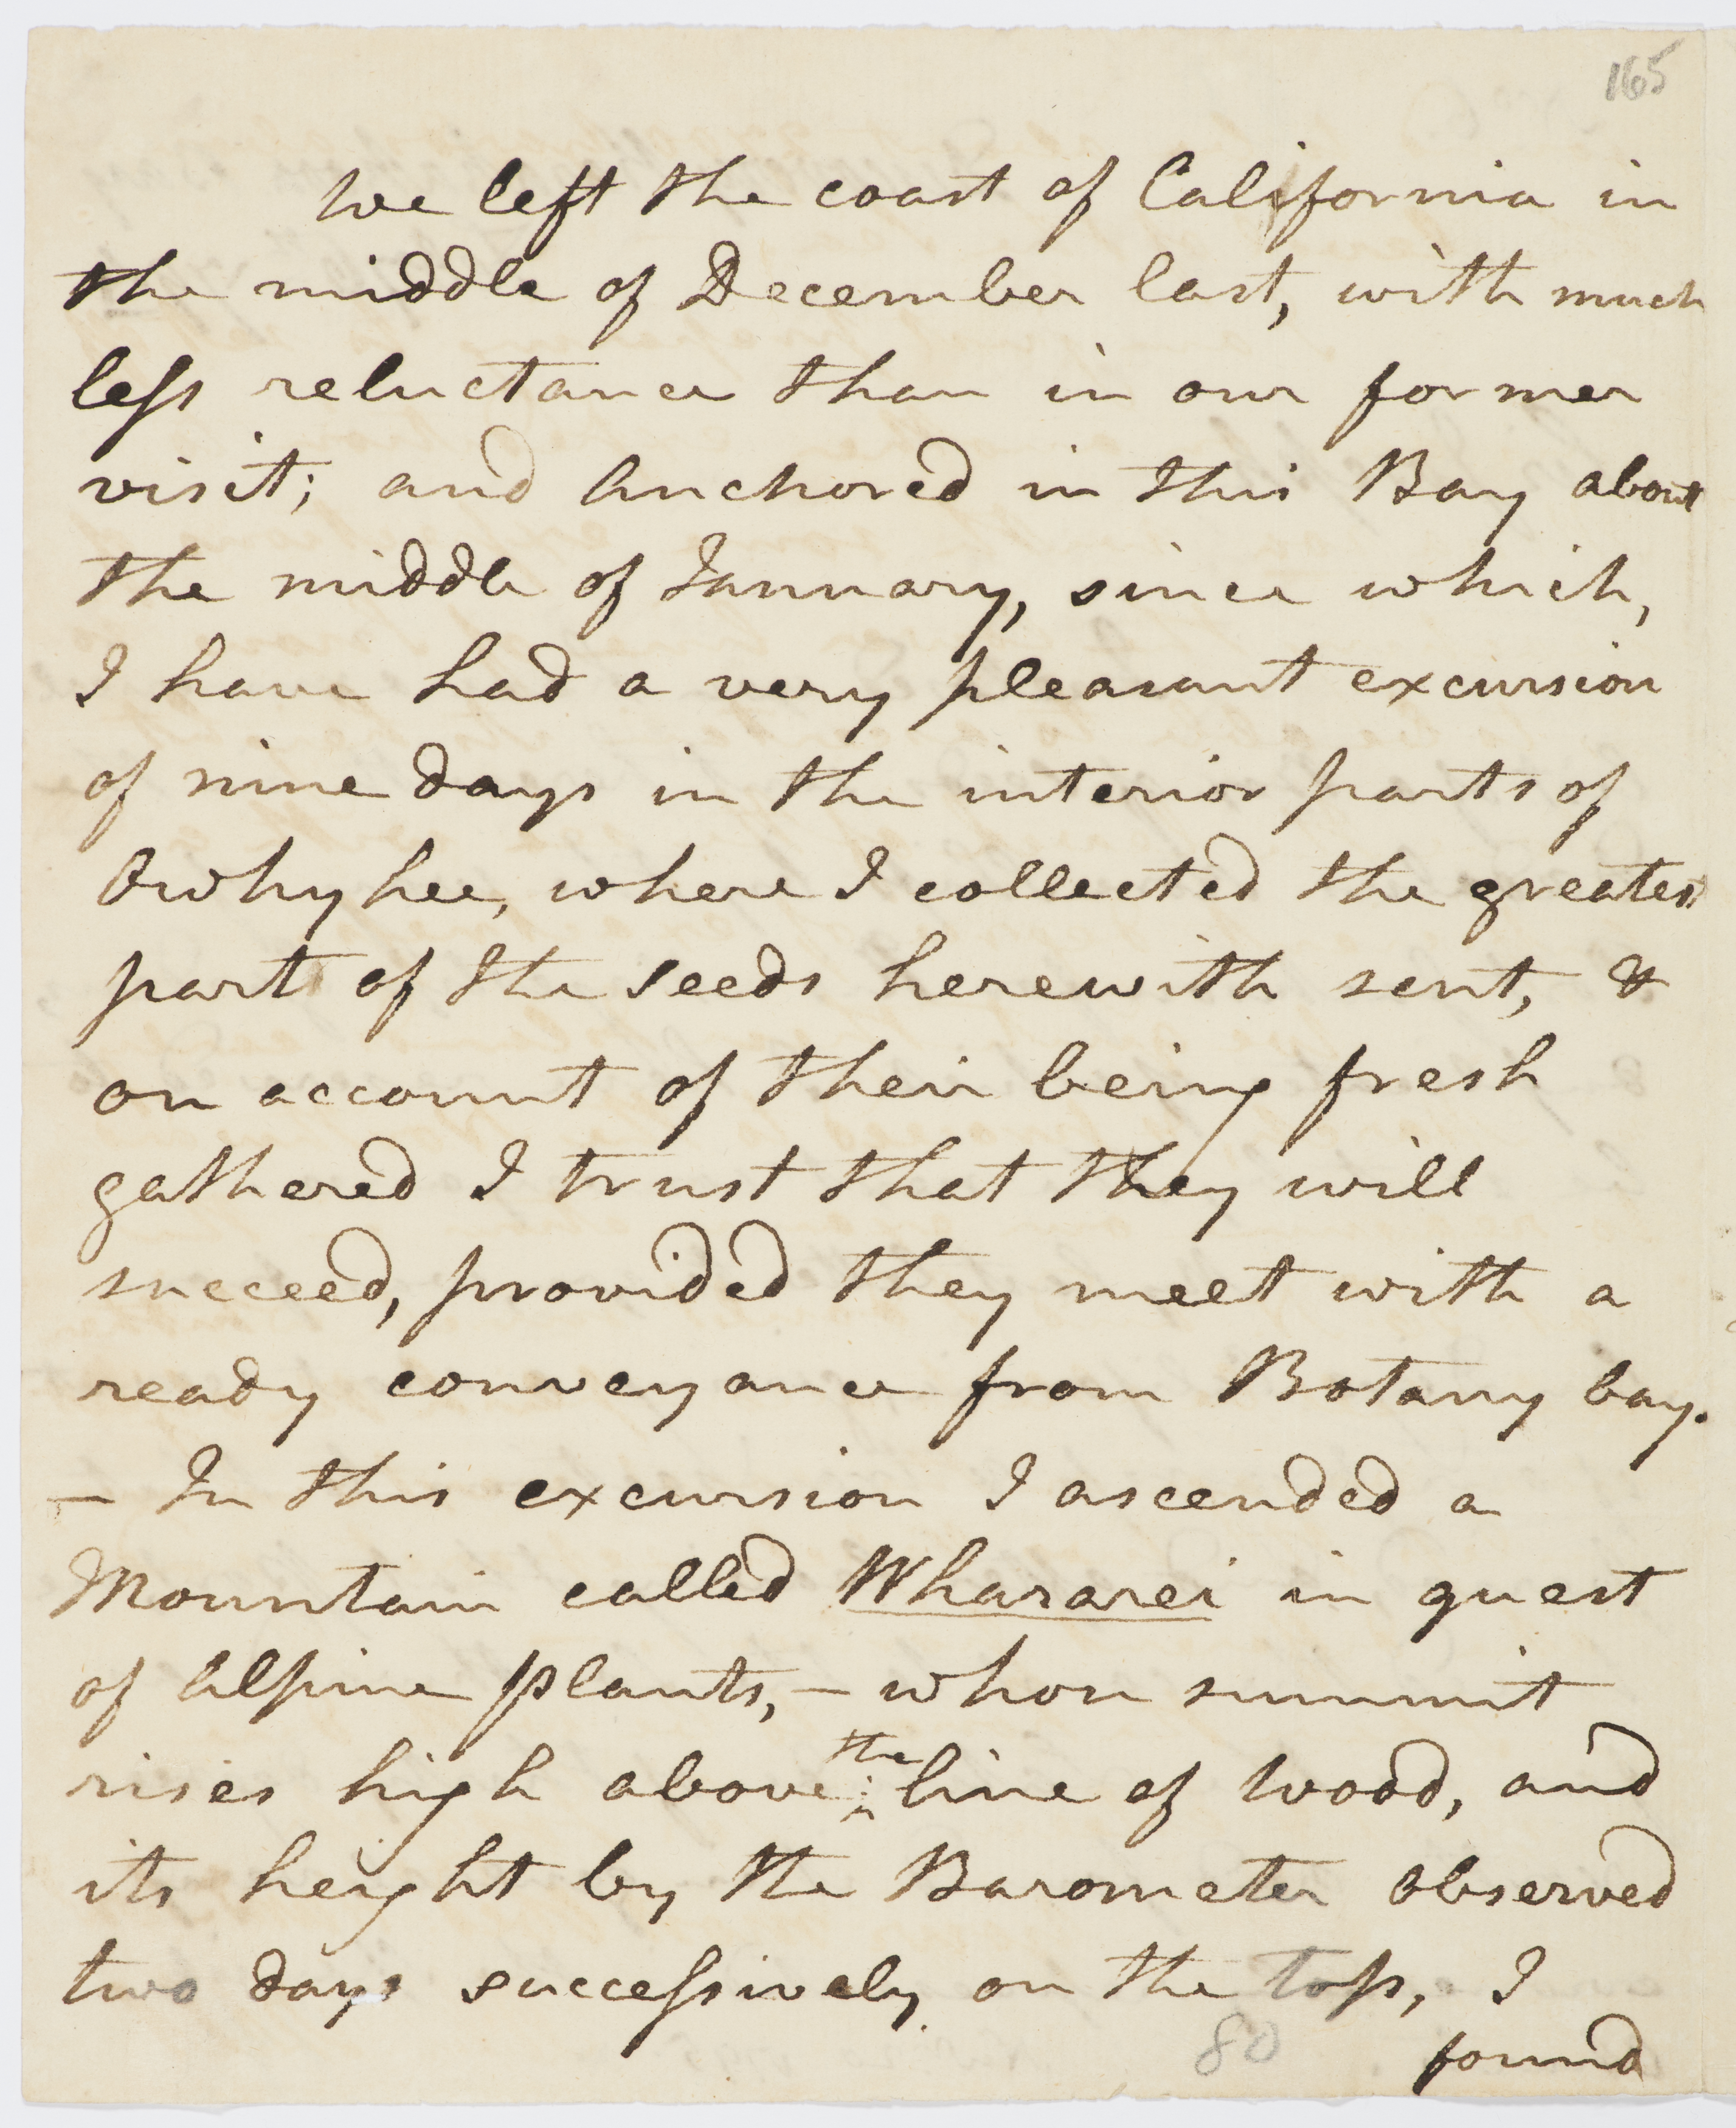 165
We left the coast of California in
the middle of December last, with much
less reluctance than in our former
visit; and Anchored in this Bay about
the middle of January, since which,
I have had a very pleasant excursion
of nine days in the interior parts of
Owhyhee, where I collected the greatest
part of the seeds herewith sent, &
on account of their being fresh
gathered I trust that they will
succeed, provided they meet with a
ready conveyance from Botany bay.
– In this excursion I ascended a
Mountain called Whararei in quest
of Alpine plants, – whose summit
rises high above the line of Wood, and
its height by the Barometer observed
two days successively on the top, I
80
found